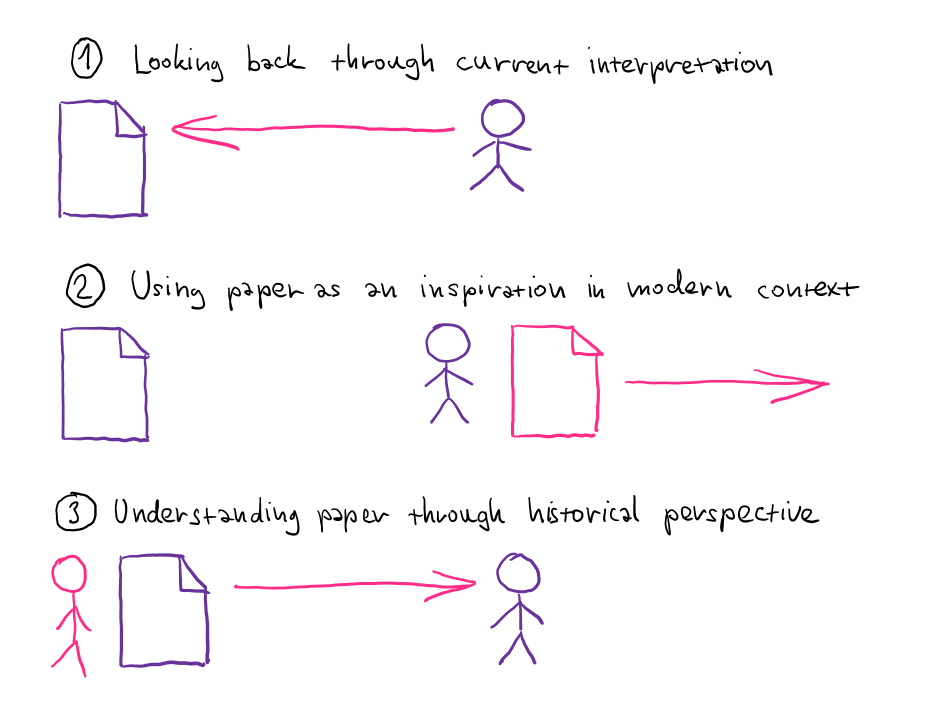 1 Looking back through current interpretation
2 Using paper as an inspiration in modern context
3 Understanding paper through historical perspective